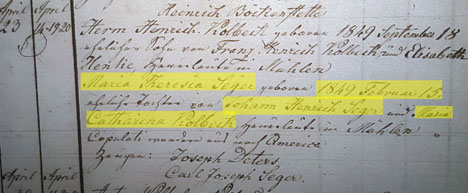 Heinrich Böckerstette
April April
23 4-19.20 Herm Heinrich Kolbeck geboren 1849 September 18
eheliche Sohn von Franz Henrich Kolbeck und Elisabeth
Henke Heuerleute in Mühlen
Maria Theresia Seger geboren 1849 Februar 15.
eheliche Tochter von Johann Henrich Seger und Maria
Catharina Kolbeck Heuerleute in Mühlen
Copulati wandern aus nach America
Zeugen: Joseph Deters,
Carl Joseph Seger.
April April